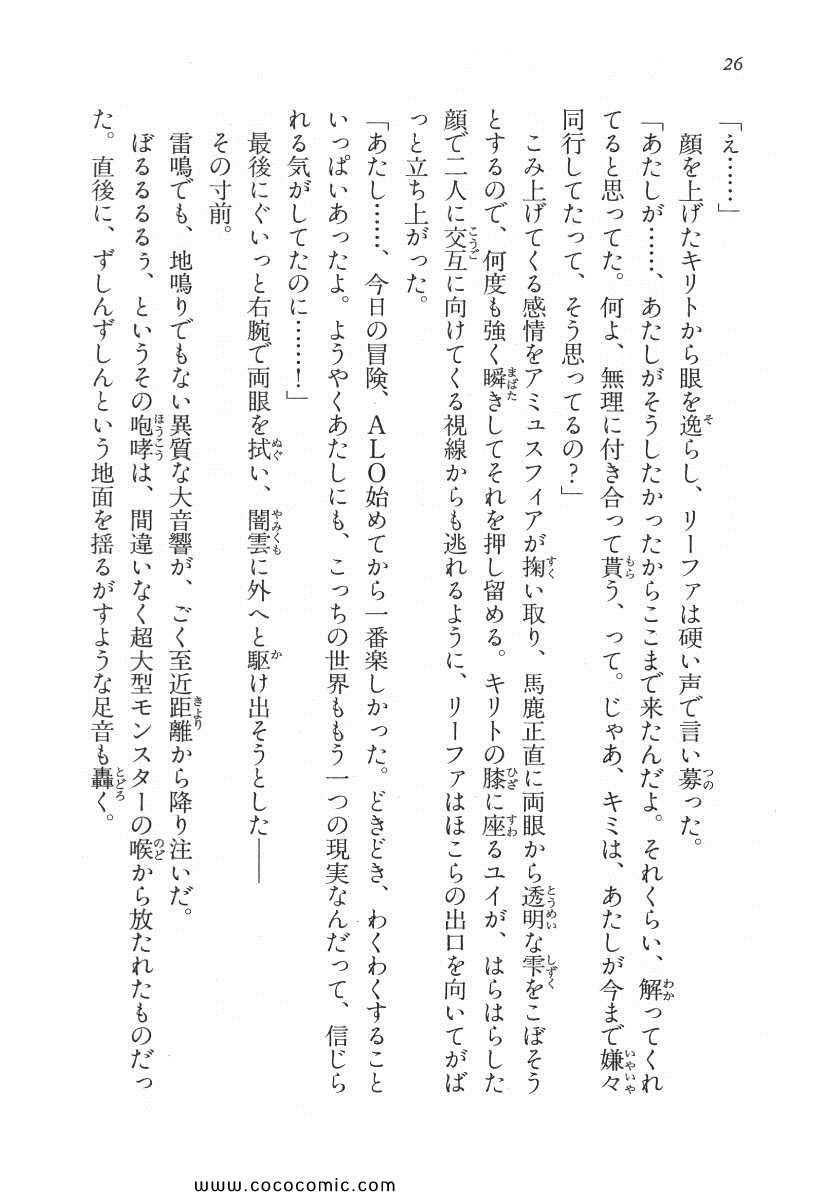 26
「え……」
　顔を上げたキリトから眼を逸らし、リーファは硬い声で言い募った。
「あたしが……、あたしがそうしたかったからここまで来たんだよ。それくらい、解ってくれ
てると思ってた。何よ、無理に付き合って貰う、って。じゃあ、キミは、あたしが今まで嫌々
同行してたって、そう思ってるの？」
　こみ上げてくる感情をアミュスフィアが掬い取り、馬鹿正直に両眼から透明な雫をこぼそう
とするので、何度も強く瞬きしてそれを押し留める。キリトの膝に座るユイが、はらはらした
顔で二人に交互に向けてくる視線からも逃れるように、リーファはほこらの出口を向いてがば
っと立ち上がった。
「あたし……、今日の冒険、ＡＬＯ始めてから一番楽しかった。どきどき、わくわくすること
いっぱいあったよ。ようやくあたしにも、こっちの世界ももう一つの現実なんだって、信じら
れる気がしてたのに……！」
　最後にぐいっと右腕で両眼を拭い、闇雲に外へと駆け出そうとした――
　その寸前。
　雷鳴でも、地鳴りでもない異質な大音響が、ごく至近距離から降り注いだ。
　ぼるるるるぅ、というその咆哮は、間違いなく超大型モンスターの喉から放たれたものだっ
た。直後に、ずしんずしんという地面を揺るがすような足音も轟く。
www.cococomic.com/